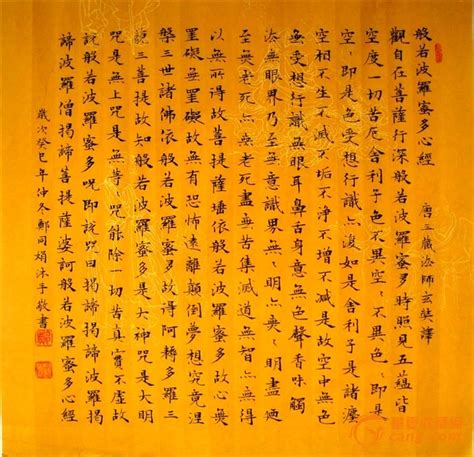 般若波羅蜜多心經 唐三藏法師玄奘譯
觀自在菩薩行深般若波羅蜜多時照見五蘊皆
空度一切苦厄舍利子色不異空〻不異色〻即是
空〻即是色受想行識亦復如是舍利子是諸灋
空相不生不滅不垢不淨不增不減是故空中無色
無受想行識無眼耳鼻舌身意無色聲香味觸
法無眼界乃至無意識界無〻明亦無〻明盡迺
至無老死亦無老死盡無苦集滅道無智亦無得
以無所得故菩提薩埵依般若波羅蜜多故心無
罣礙無罣礙故無有恐怖遠離顛倒夢想究竟涅
槃三世諸佛依般若波羅蜜多故得阿耨多羅三
藐三菩提故知般若波羅蜜多是大神咒是大明
咒是無上咒是無等〻咒能除一切苦真實不虛故
說般若波羅蜜多咒即說咒曰揭諦揭諦波羅揭
諦波羅僧揭諦菩提薩婆訶般若波羅蜜多心經
歲次癸巳年仲冬鄭同娟沐手敬書
cang.com